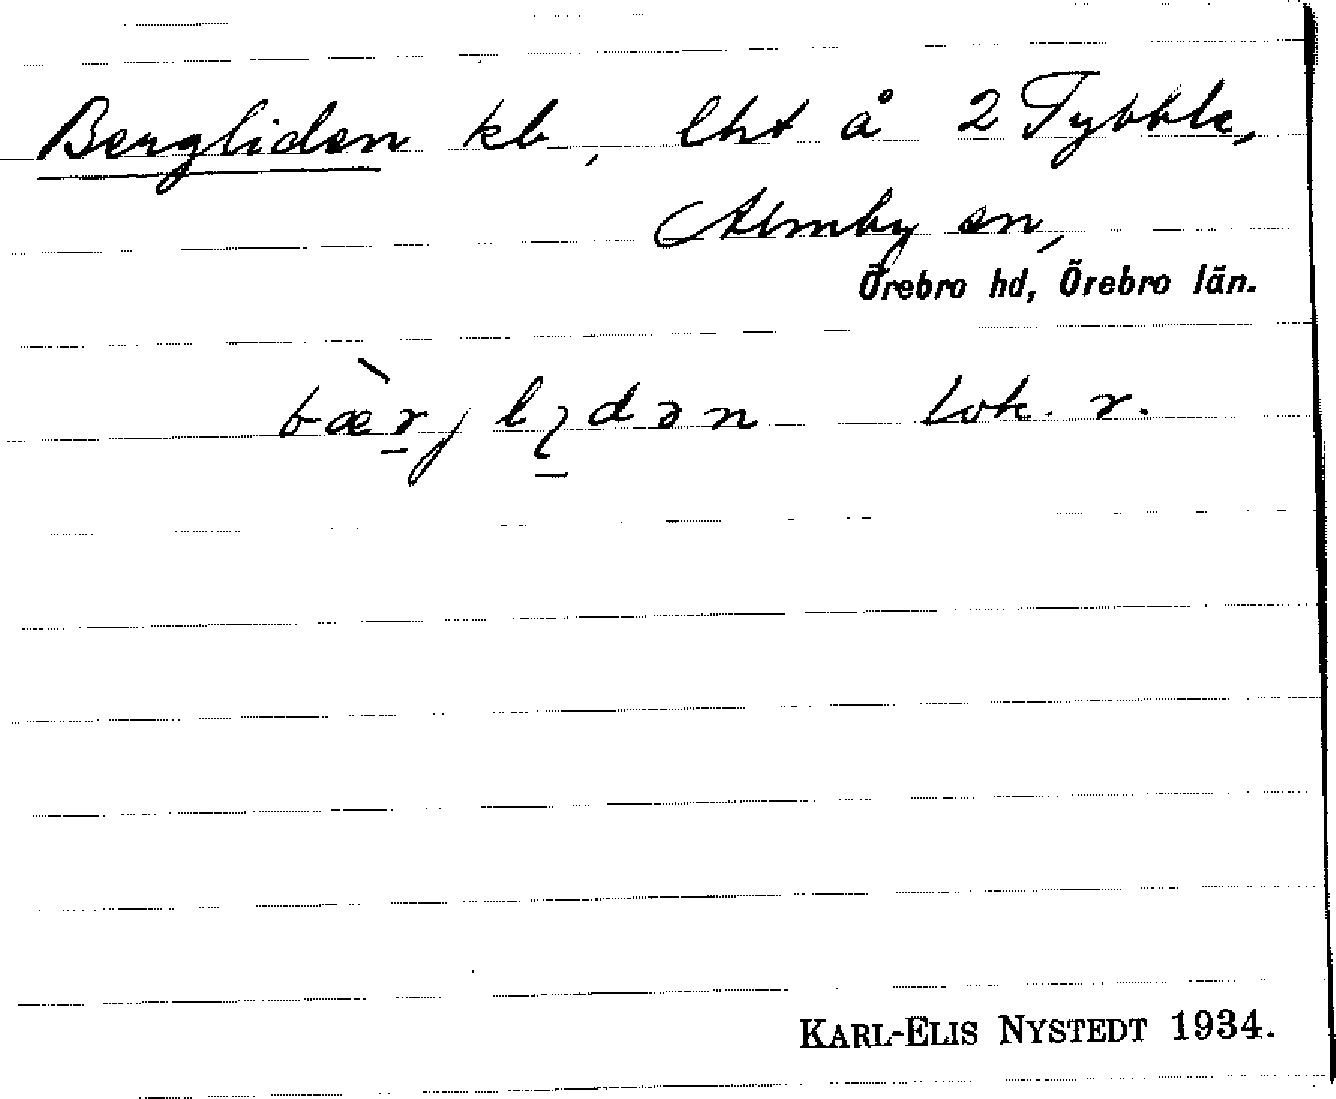 Bergliden kb, lht å 2 Tybble,
Almby sn,
Örebro hd, Örebro län.
bæ̀r̲j lı̲dən lok. r.
KARL-ELIS NYSTEDT 1934.